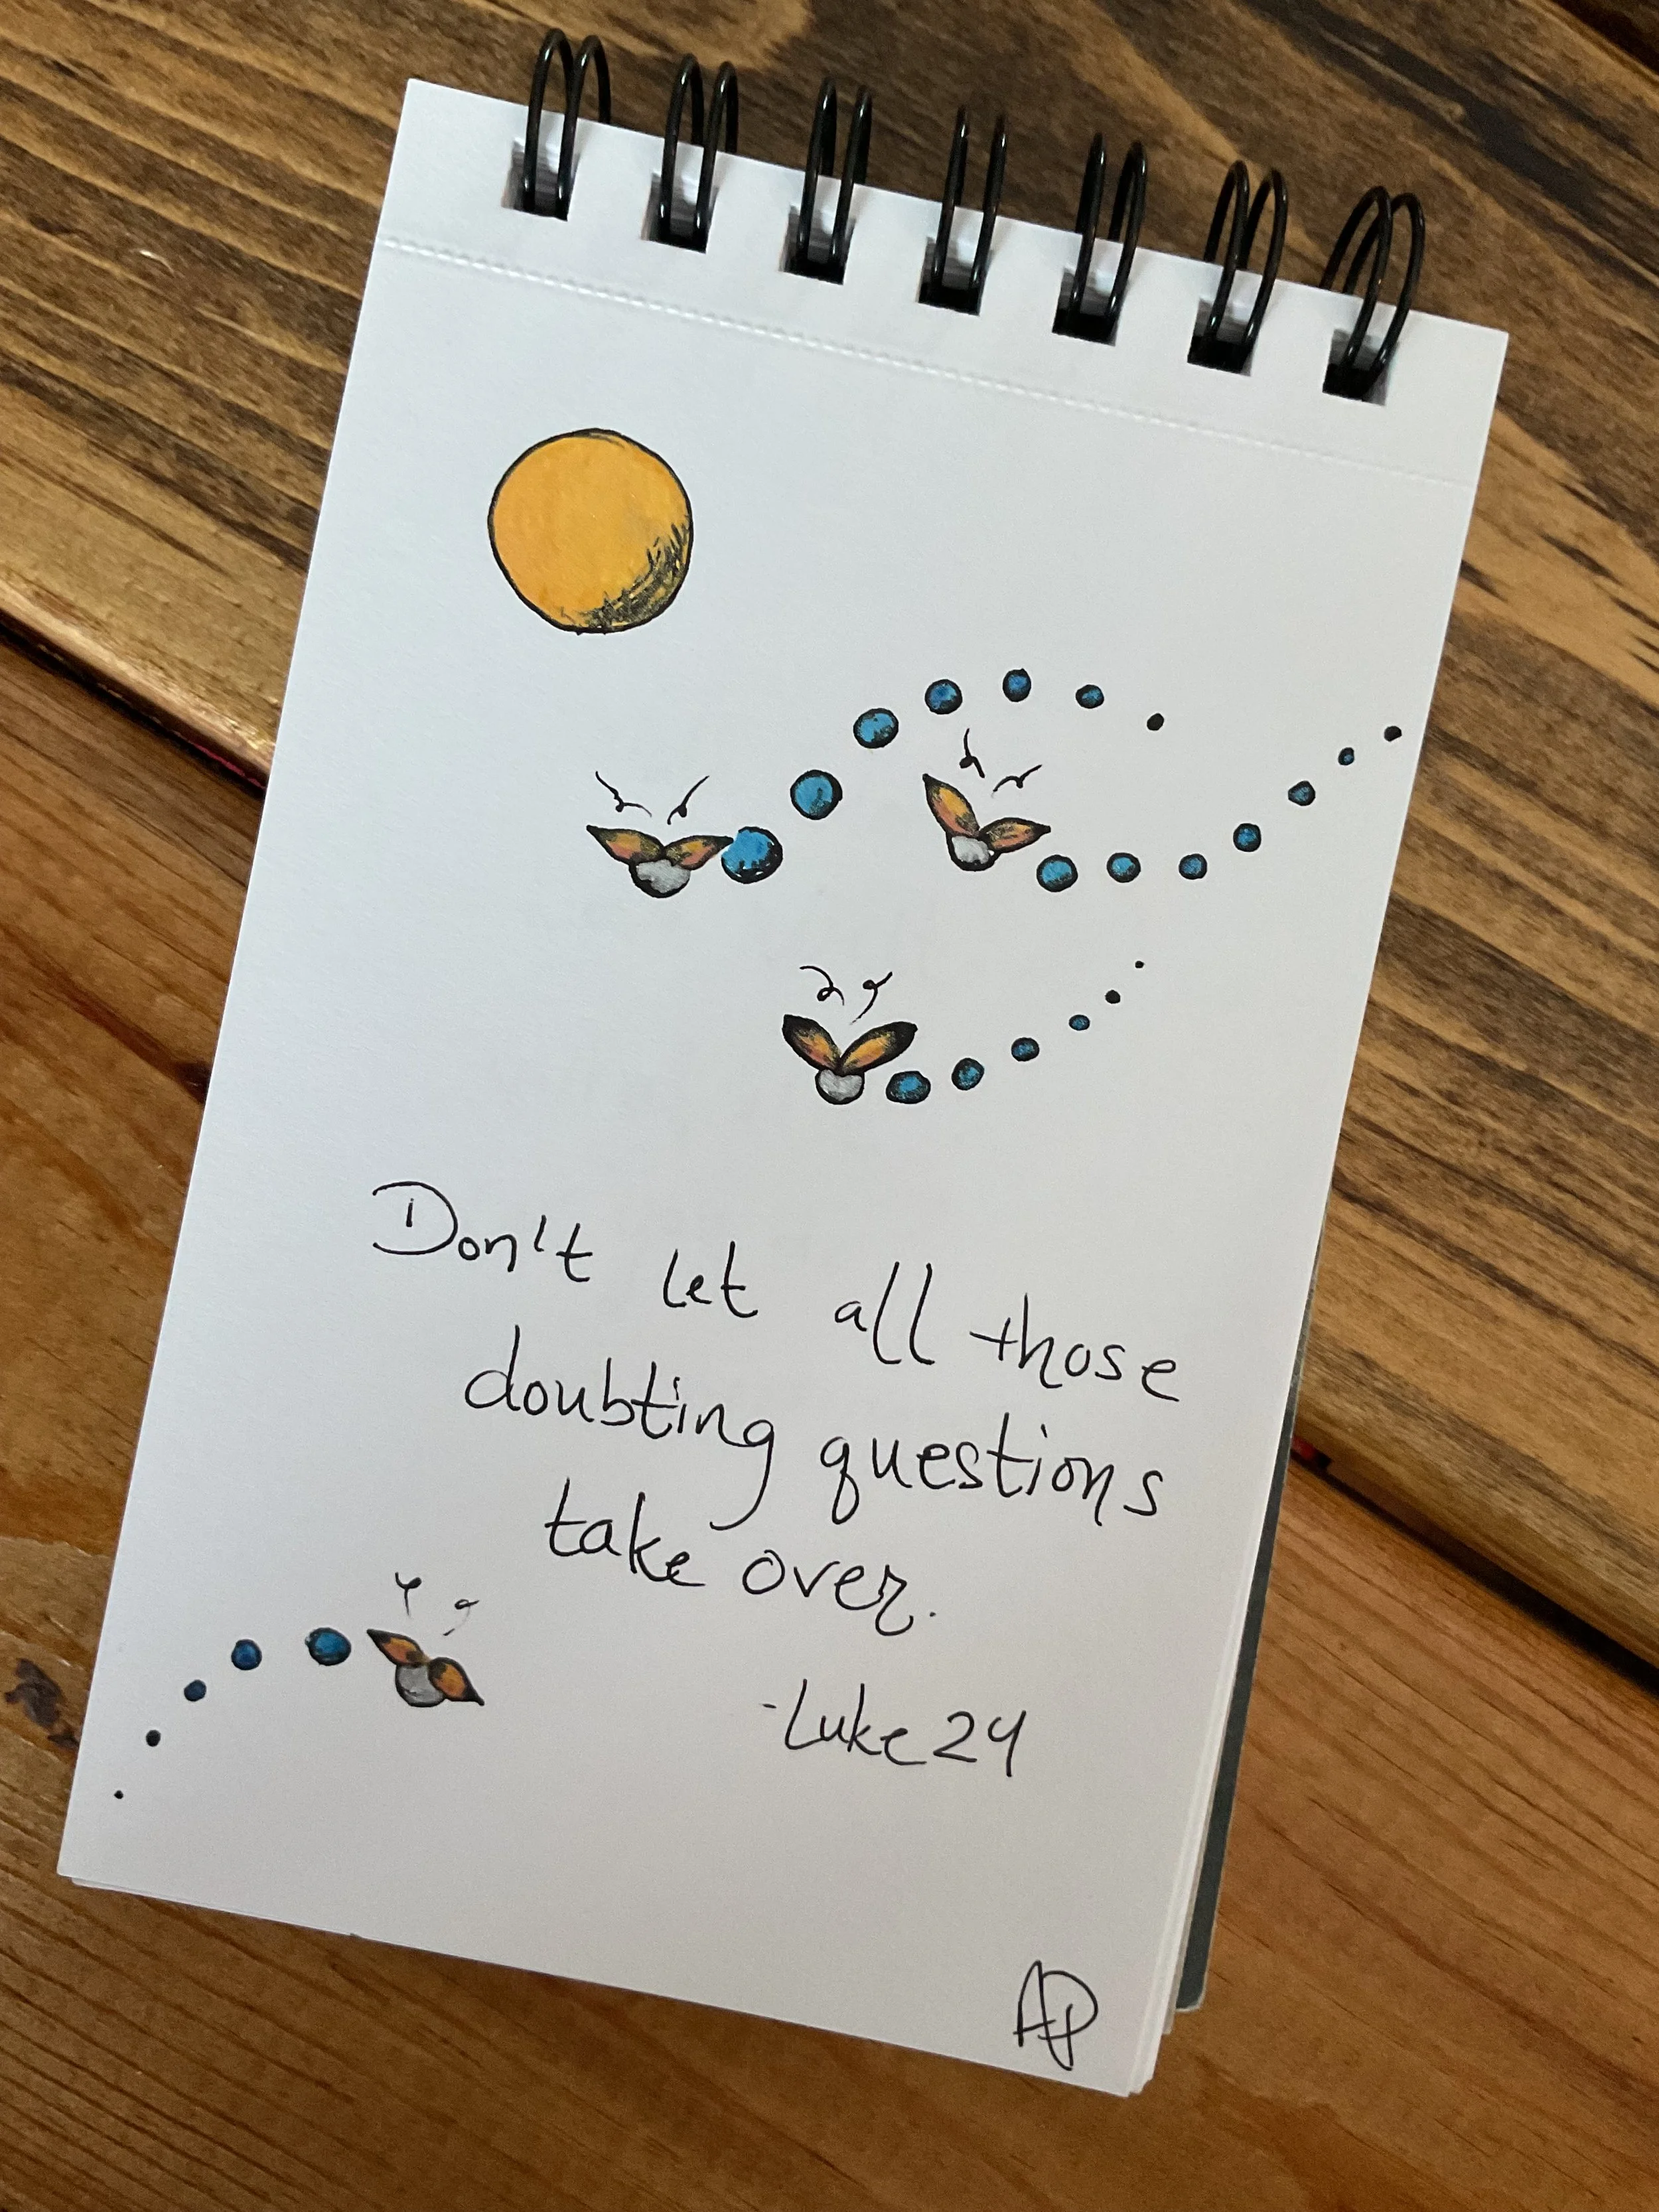 Don't let all those
doubting questions
take over.
-Luke 24
AP